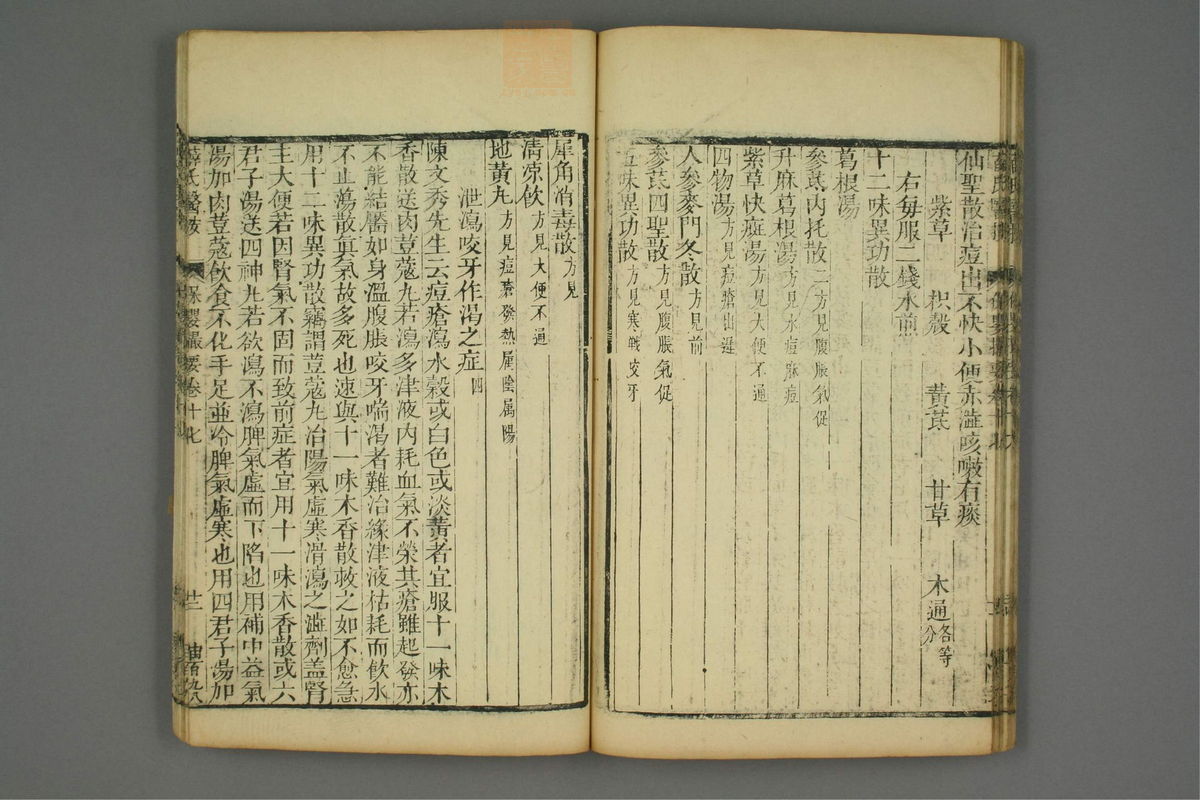 仙聖散治痘出不快小便赤澁咳嗽有痰
紫草 枳殼 黃芪 甘草 木通各等分
右每服二錢水煎
十二味異功散
葛根湯
參芪內托散二方見腹脹氣促
升麻葛根湯方見水痘麻痘
紫草快癍湯方見大便不通
四物湯方見痘瘡出遲
人參麥門冬散方見前
參芪四聖散方見腹脹氣促
五味異功散方見寒戰咬牙
犀角消毒散方見
清凉飲方見大便不通
地黃丸方見痘瘡發熱屬陰屬陽
泄瀉咬牙作渴之症四
陳文秀先生云痘瘡瀉水穀或白色或淡黃者宜服十一味木
香散送肉荳蔻丸若瀉多津液內耗血氣不榮其瘡雖起發亦
不能結靨如身溫腹脹咬牙喘渴者難治緣津液枯耗而飲水
不止蕩散眞氣故多死也速與十一味木香散救之如不愈急
用十二味異功散竊謂荳蔻丸治陽氣虛寒滑瀉之澁劑盖腎
主大便若因腎氣不固而致前症者宜用十一味木香散或六
君子湯送四神丸若欲瀉不瀉脾氣虛而下陷也用補中益氣
湯加肉荳蔻飲食不化手足並冷脾氣虛寒也用四君子湯加
薛氏醫按 保嬰撮要卷十七